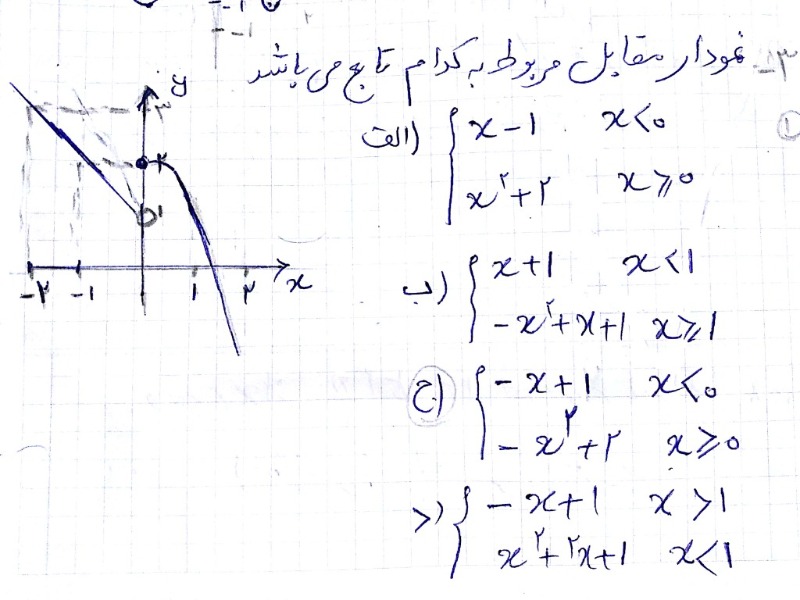 -۱
-۱
۲
۳- نمودار مقابل مربوط به کدام تابع می باشد
①
الف) { x-1 x<0
x²+۲ x⩾0
ب) { x+1 x<1
-x²+x+1 x⩾1
ج) { -x+1 x<0
-x²+۲ x⩾0
د) { -x+1 x>1
x²+۲x+1 x<1
y
۳
۲
۱
-۲ -۱ ۱ ۲ x